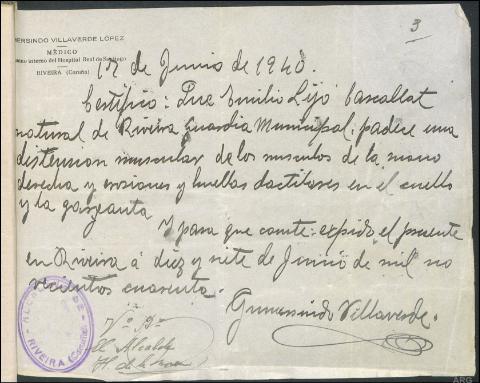 3
MERSINDO VILLAVERDE LÓPEZ
MÉDICO
interno del Hospital Real de Santiago
RIVEIRA (Coruña)
17 de Junio de 1940.
Certifico: Que Emilio Lijó Cascallar
natural de Riveira Guardia Municipal, padece una
distension muscular de los musculos de la mano
derecha y erosiones y huellas dactilares en el cuello
y la garganta
Y para que conste: expido el presente
en Riveira á diez y siete de Junio de mil no
vecientos cuarenta.
Gumersindo Villaverde.
Vº Bº
El Alcalde
ALCALDIA DE
RIVEIRA (Coruña)
ARG